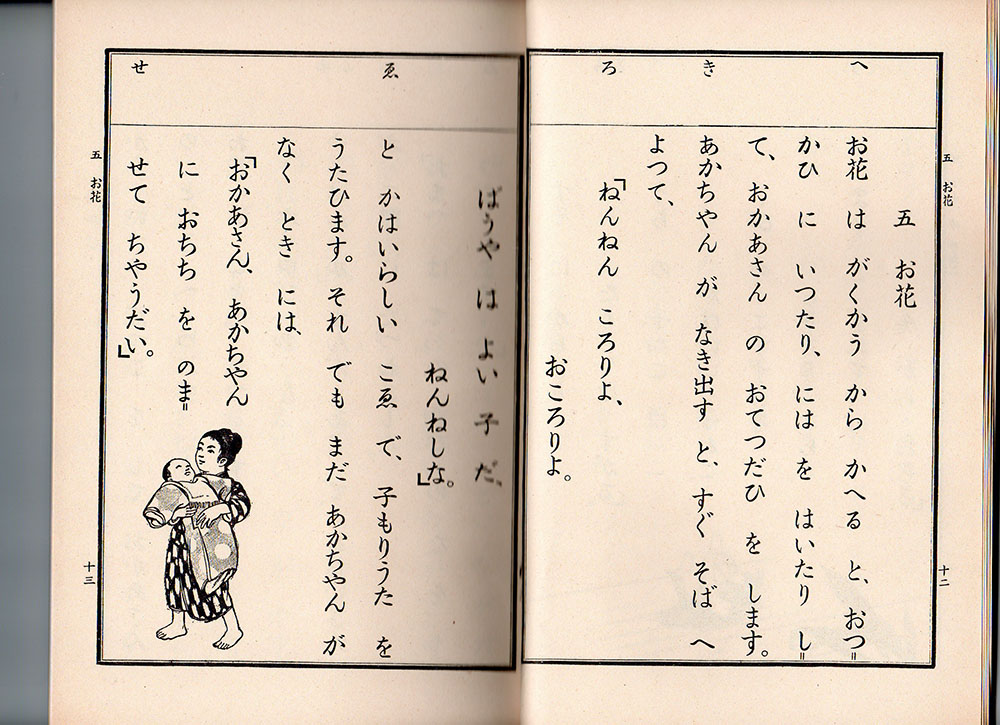 五 お花
十二
へ
き
ろ
五 お花
お花 は がくかう から かへる と、おつ=
かひ に いつたり、には を はいたり し=
て、おかあさん の おてつだひ を します。
あかちやん が なき出す と、すぐ そば へ
よつて、
「ねんねん ころりよ、
おころりよ。
ゑ
せ
ばうや は よい 子 だ、
ねんねしな。」
と かはいらしい こゑ で、子もりうた を
うたひます。それ でも まだ あかちやん が
なく とき には、
「おかあさん、あかちやん
に おちち を のま=
せて ちやうだい。」
五 お花
十三